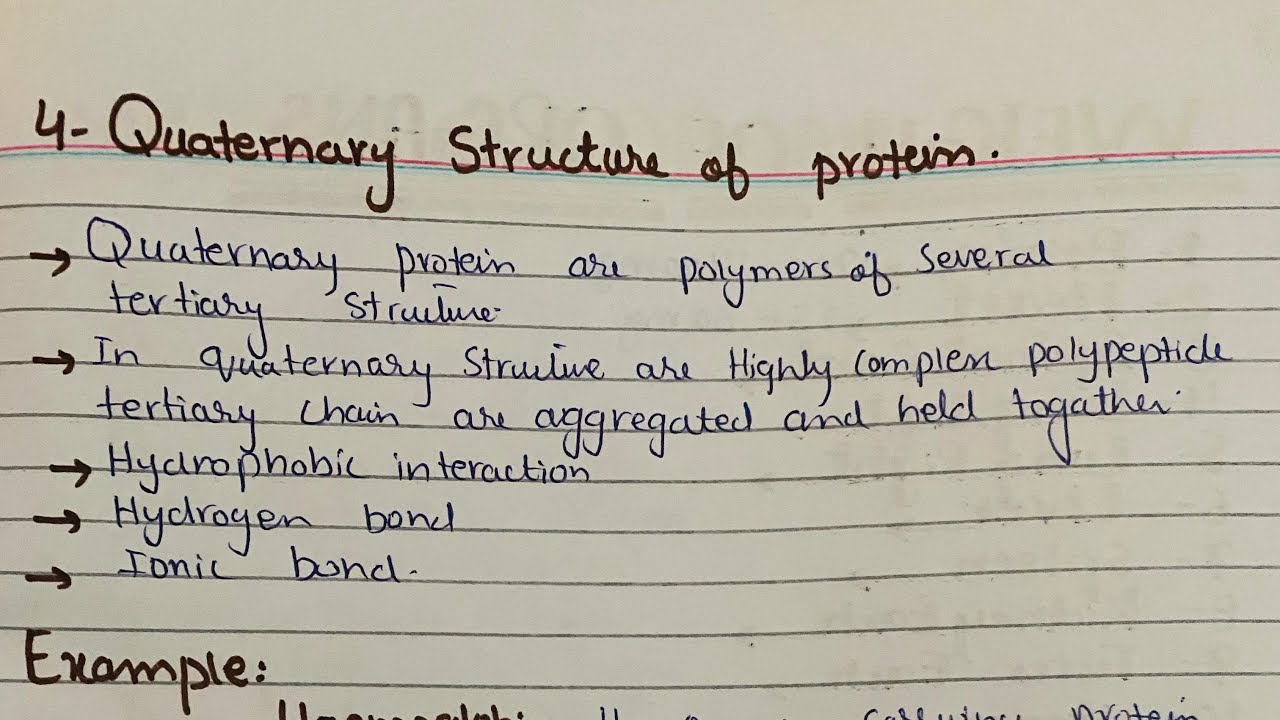 4- Quaternary Structure of protein.
→ Quaternary protein are polymers of several
tertiary structure.
→ In quaternary Structure are Highly Complex polypeptide
tertiary chain are aggregated and held togather.
→ Hydrophobic interaction
→ Hydrogen bond
→ Ionic bond.
Example:
protein